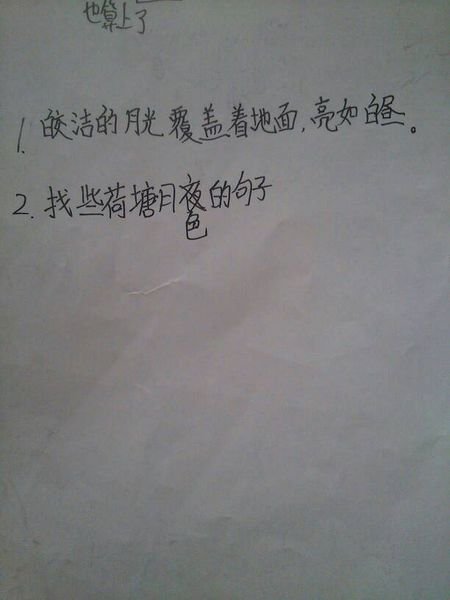 也算上了
1. 皎洁的月光覆盖着地面,亮如白昼。
2. 找些荷塘月夜的句子
色